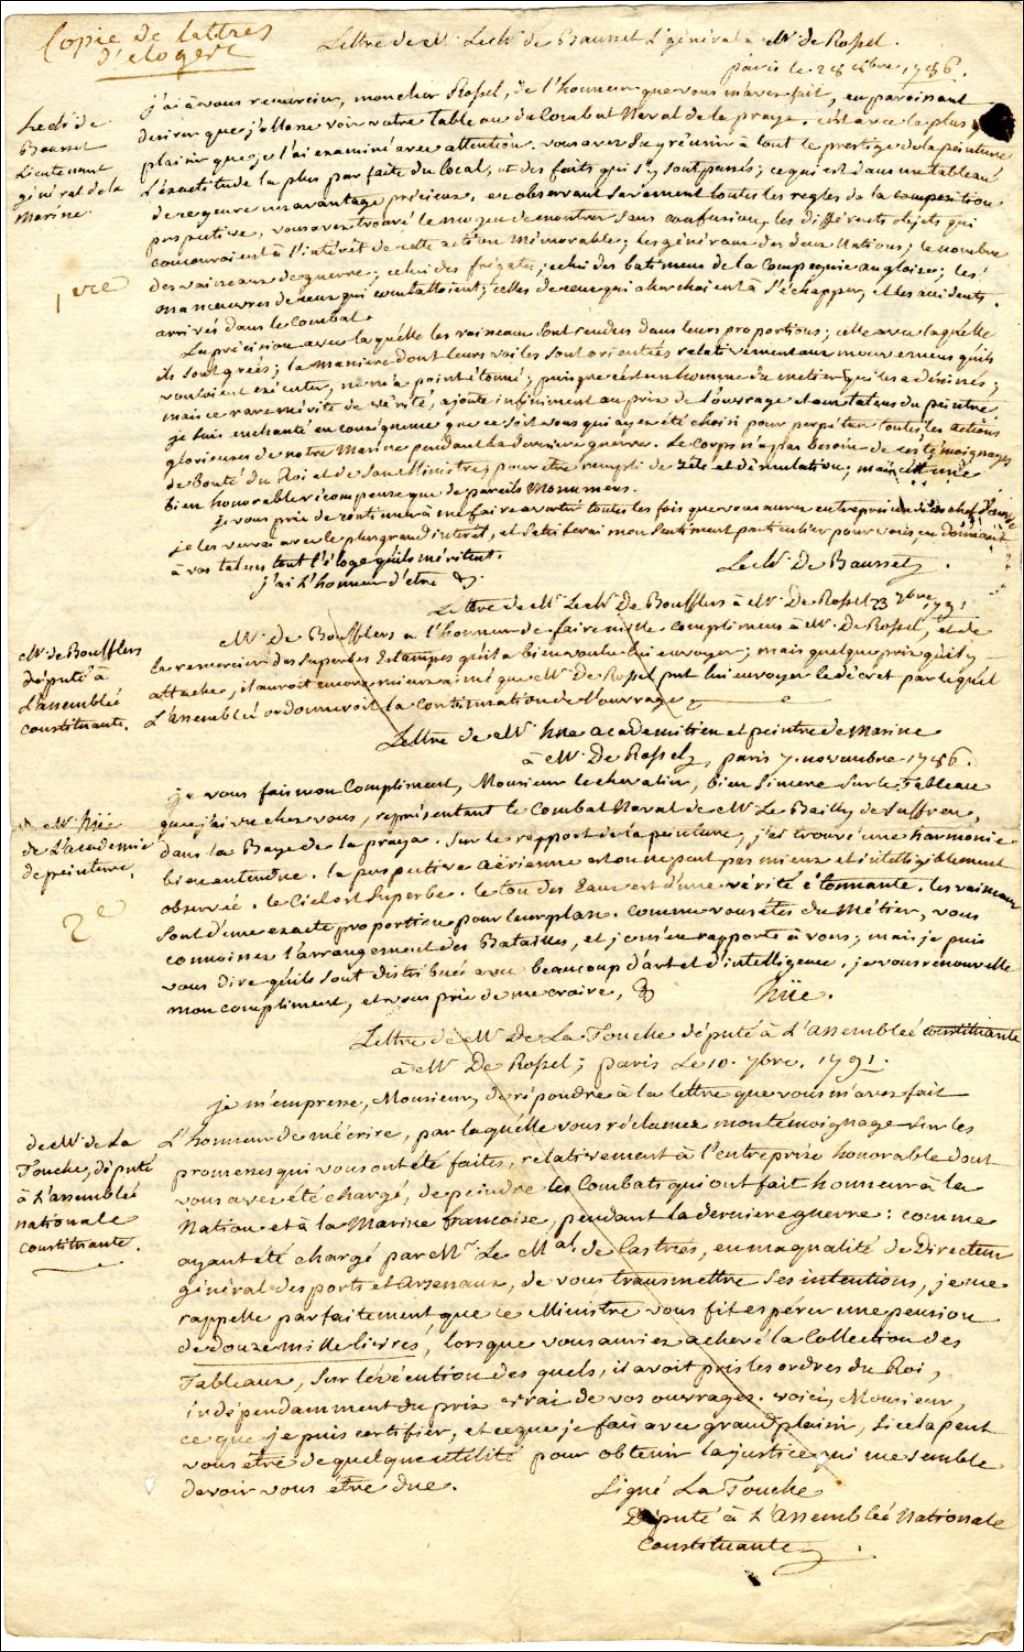 Copie de lettres
d'éloges
Lettre de Mr. Le Chr. de Bausset Lt. général a Mr. de Rossel.
paris le 28 xbre 1786.
Le chr. de
Bausset
Lieutenant
général de la
Marine.
1re
j'ai à vous remercier, mon cher Rossel, de l'honneur que vous m'avez fait, en paroissant
desirer que j'allasse voir votre tableau du Combat Naval de la praya. c'est avec le plus
plaisir que je l'ai examiné avec attention. vous avez sçu réunir à tout le prestige de la peinture
L'éxactitude la plus parfaite du local, et des faits qui s'y sont passés; ce qui est dans un tableau
de ce genre un avantage précieux. en observant savément toutes les regles de la composition
perspective, vous avez trouvé le moyen de montrer sans confusion, les différents objets qui
concouroient à l'intérêt de cette action mémorable; les généraux des deux Nations; le nombre
des vaisseaux de guerre; celui des frégates; celui des batimens de la Compagnie angloise; les
manoeuvres de ceux qui combattoient; celles de ceux qui cherchoient à s'échapper, et les accidents
arrivés dans le Combat.
La précision avec laquélle les vaisseaux sont rendus dans leurs proportions; celle avec laquélle
ils sont gréés; la maniere dont leurs voiles sont orientées relativement aux mouvemens qu'ils
vouloient exécuter, ne m'a point étonné; puisque c'est un homme du metier qui les a dessinés;
mais ce rare mérite de vérité, ajoute infiniment au prix de l'ouvrage et aux talens du peintre.
je suis enchanté en conséquence que ce soit vous qui ayez été choisi pour perpétuer toutes les actions
glorieuses de notre Marine pendant la derniere guerre. Le Corps n'a pas besoin de ces témoignages
de bonté du Roi et de son Ministre, pour être rempli de zéle et d'émulation; mais c'est une
bien honorable récompense que de pareils Monumens.
je vous prie de continuer à me faire avertir toutes les fois que vous aurez entrepris un de ces chef d'oeuvre
je les verrai avec le plus grand interêt, et satisferai mon sentiment particulier pour vous en donnant
à vos talens tout l'éloge qu'ils méritent.
j'ai L'honneur d'etre &.
Le Chr. De Bausset.
Lettre de Mr. Le Chr. De Boufflers à Mr. De Rossel 23 7bre 1791
Mr. de Boufflers
député à
L'assemblée
constituante.
Mr. De Boufflers a l'honneur de faire mille complimens à Mr. De Rossel, et de
le remercier des superbes Estampes qu'il a bien voulu lui envoyer; mais quelque prix qu'il y
attache, il auroit encore mieux aimé que Mr. De Rossel put lui envoyer le décret par lequél
L'assemblée ordonneroit la Continuation de l'ouvrage.
Lettre de Mr. hüe academitien et peintre de Marine
à Mr. De Rossel, paris 7. novembre 1786.
Mr. hüe
de L'academie
de peinture.
2e
je vous fais mon Compliment, Monsieur le chevalier, bien sincere sur le Tableau
que j'ai vu chez vous, représentant le Combat Naval de Mr. Le Bailly de Suffren,
dans la Baye de la praya. sur le rapport de la peinture, j'ai trouvé une harmonie
bien entendue. la perspective aërienne est on ne peut pas mieux et intelligiblement
observée. le Ciel est superbe. le ton des Eaux est d'une vérité étonnante. les vaisseaux
sont d'une exacte proportion pour leur plan. comme vous êtes du Métier, vous
connoissez l'arrangement des Batailles, et je m'en rapporte à vous; mais je puis
vous dire qu'ils sont distribués avec beaucoup d'art et d'intelligence. je vous renouvelle
mon compliment, et vous prie de me croire, &
hüe.
Lettre de Mr. De La Touche député à L'assemblée constituante
à Mr. De Rossel; paris Le 10. 7bre. 1791.
de Mr. de La
Touche, député
à L'assemblée
nationale
constituante.
je m'empresse, Monsieur, de répondre à la lettre que vous m'avez fait
L'honneur de m'écrire, par laquélle vous réclamez mon témoignage sur les
promesses qui vous ont été faites, relativement à l'entreprise honorable dont
vous avez été chargé, de peindre les Combats qui ont fait honneur à la
Nation et à la Marine francoise, pendant la derniere guerre: comme
ayant été chargé par Mr. Le Mal. de Castries, en ma qualité de Directeur
général des ports et Arsenaux, de vous transmettre ses intentions, je me
rappelle parfaitement que ce Ministre vous fit espérer une pension
de douze mille livres, lorsque vous auriez achevé la Collection des
Tableaux, sur l'éxécution des quels, il avoit pris les ordres du Roi,
indépendamment du prix vrai de vos ouvrages. voici, Monsieur,
ce que je puis certifier, et ce que je fais avec grand plaisir, si cela peut
vous etre de quelque utilité pour obtenir la justice qui me semble
devoir vous être due.
Signé La Touche
Député à L'Assemblée Nationale
Constituante